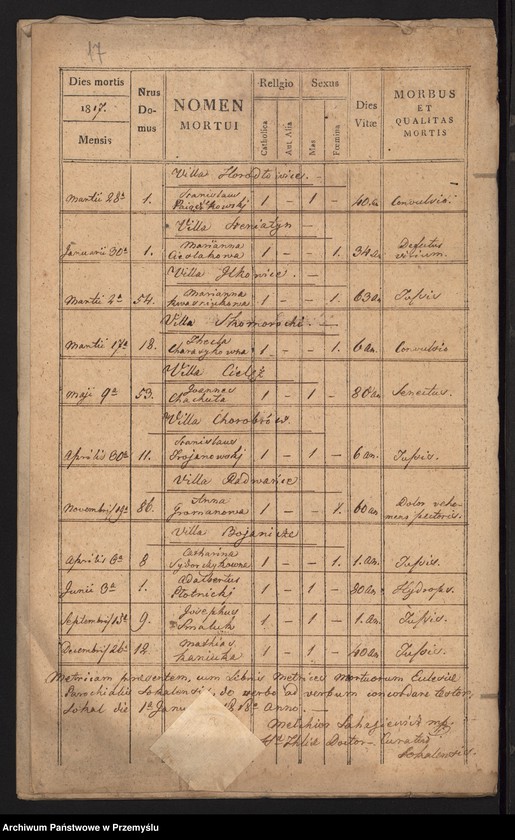 17
Dies mortis
1817.
Mensis
Nrus Domus
NOMEN MORTUI
Religio
Catholica
Aut Alia
Sexus
Mas
Fœmina
Dies Vitæ
MORBUS ET QUALITAS MORTIS
Villa Horodłowice. —
Martii 28ª 1. Stanislaus 1 — 1 — 40. Convulsio.
Villa
Januarii 30ª 1. Marianna 1 — — 1. 34 Defectus virium.
Villa Ilkowice. —
Martii 2ª 54. Marianna 1 — — 1. 63 an. Tussis
Villa Skomorochi. —
Martii 17ª 18. Thecla 1 — — 1. 6 an. Convulsio
Villa Cieląż
Maji 9ª 53. Joannes Chachuta 1 — 1 — 80 an. Senectus.
Villa Chorobrów.
Aprilis 30ª 11. Stanislaus Trojanowskj 1 — 1 — 6 an. Tussis.
Villa Radwańce
Novembris 19ª 86. Anna 1 — — 1. 60 an. Dolor vehemens pectoris.
Villa Bojanicze
Aprilis 6ª 8 Catharina 1 — — 1. 1. an. Tussis.
Junii 3ª 1. Adalbertus Płotnickj 1 — 1 — 30 an. Hydrops.
Septembris 13ª 9. Josephus Smaluh 1 — 1 — 1. an. Tussis.
Decembris 26ª 12. Mathias Kaniuka 1 — 1 — 40 an. Tussis.
Metricam præsentem, cum Libris Metrices mortuorum Ecclesiæ
Parochialis Sokalensis, de verbo ad verbum concordare testor,
Sokal die 1ª Januarii 1818ª Anni. —
Melchior mp.
Doctor — Curatus
Sokalensis.
Archiwum Państwowe w Przemyślu